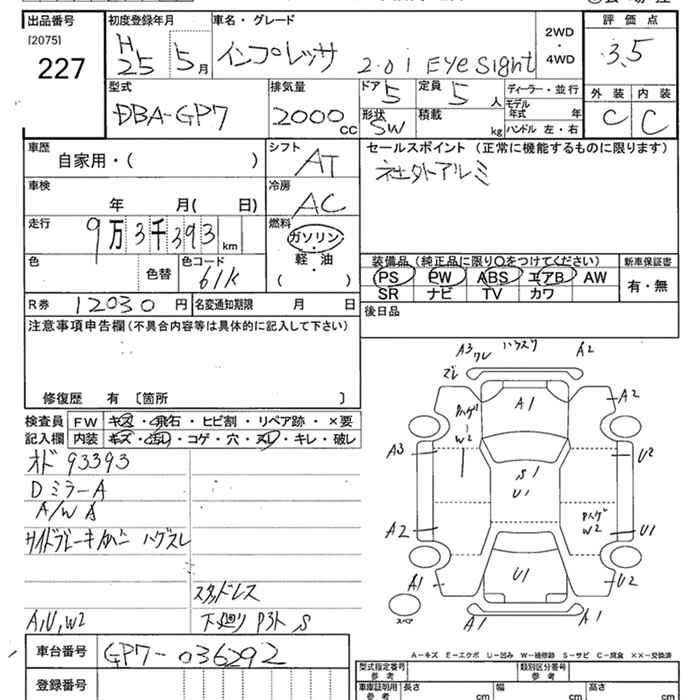 出品番号 初度登録年月 車名・グレード 2WD・4WD 評価点
[2075]
227 H25 5月 インプレッサ 2.0i Eyesight 3.5
型式 排気量 ドア 定員 ディーラー・並行 外装 内装
DBA-GP7 2000cc 5 5人 モデル年式 年 C C
形状 積載 ハンドル 左・右
SW kg
車歴 シフト セールスポイント (正常に機能するものに限ります)
自家用・( ) AT 社外アルミ
車検 冷房
年 月( 日) AC
走行 燃料
9万3千393km ガソリン
軽・油
( )
色 色替 色コード 61K
装備品(純正品に限り○をつけてください) 新車保証書
PS PW ABS エアB AW 有・無
SR ナビ TV カワ
R券 12030円 名変通知期限 月 日 後日品
注意事項申告欄(不具合内容等は具体的に記入して下さい)
修復歴 有 〔箇所 〕
検査員記入欄 FW キズ・飛石・ヒビ割・リペア跡・×要
内装 キズ・汚れ・コゲ・穴・スレ・キレ・破レ
オド 93393
DミラーA
A/W A
サイドブレーキカバー ハゲスレ
スタッドレス
A,U,W2 下廻り P3ト S
A3 ワレ ハウスワ A2
ズレ
A1 A2
Pハゲ W2
A3 U2
S1
U1
Pハゲ W2
A2 U1
A1 U1 U2
スペア A1 A1
A-キズ E-エクボ U-凹み W-補修跡 S-サビ C-腐食 ××-交換済
車台番号 GP7-036292
型式指定番号 参考 類別区分番号 参考
登録番号
車庫証明用 参考 長さ cm 幅 cm 高さ cm